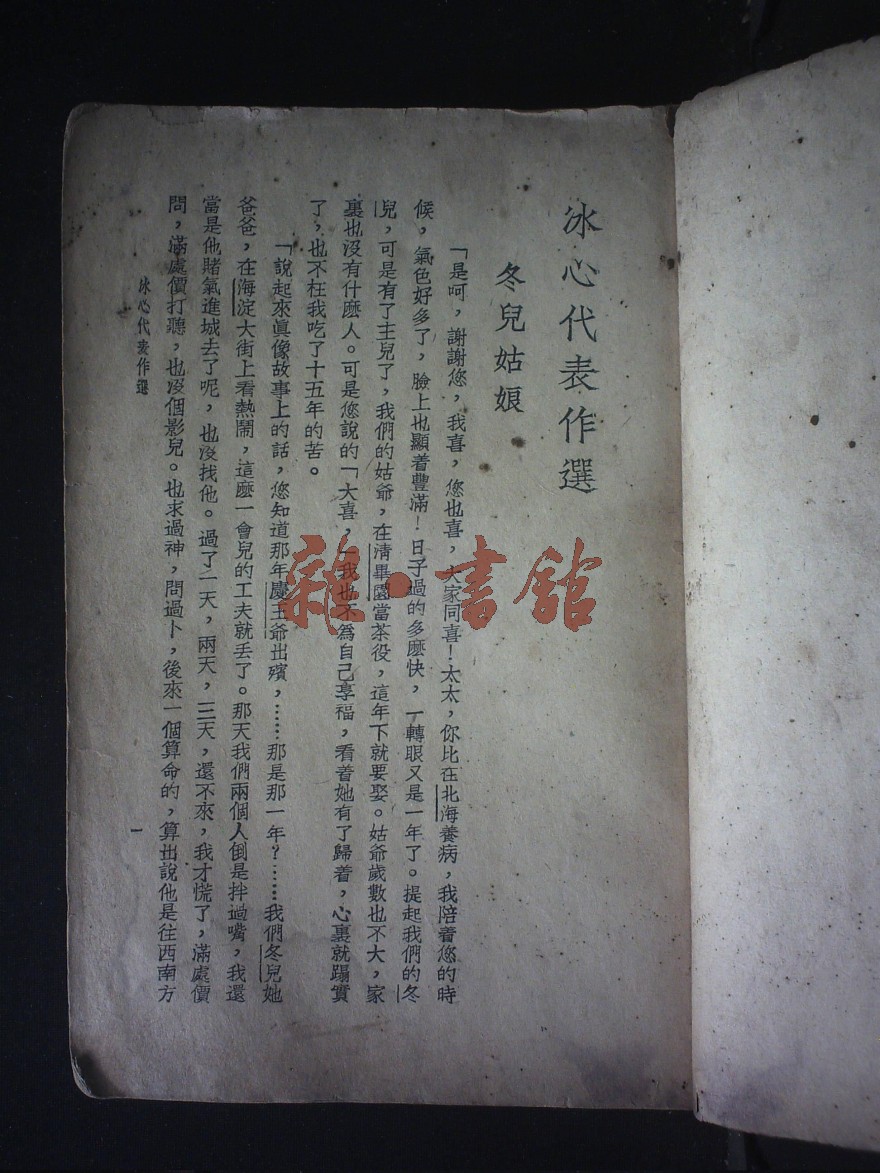 冰心代表作選
冬兒姑娘
「是呵，謝謝您，我喜，您也喜，大家同喜！太太，你比在北海養病，我陪着您的時
候，氣色好多了，臉上也顯着豐滿！日子過的多麽快，一轉眼又是一年了。提起我們的冬
兒，可是有了主兒了，我們的姑爺，在清華園當茶役，這年下就要娶。姑爺歲數也不大，家
裏也沒有什麽人。可是您說的「大喜，」我也不爲自己享福，看着她有了歸着，心裏就蹋實
了，也不枉我吃了十五年的苦。
「說起來眞像故事上的話，您知道那年慶王爺出殯，……那是那一年？……我們冬兒她
爸爸，在海淀大街上看熱鬧，這麽一會兒的工夫就丢了。那天我們兩個人倒是拌過嘴，我還
當是他賭氣進城去了呢，也沒找他。過了一天，兩天，三天，還不來，我才慌了，滿處價
問，滿處價打聽，也沒個影兒。也求過神，問過卜，後來一個算命的，算出說他是往西南方
冰心代表作選
一
雜·書館